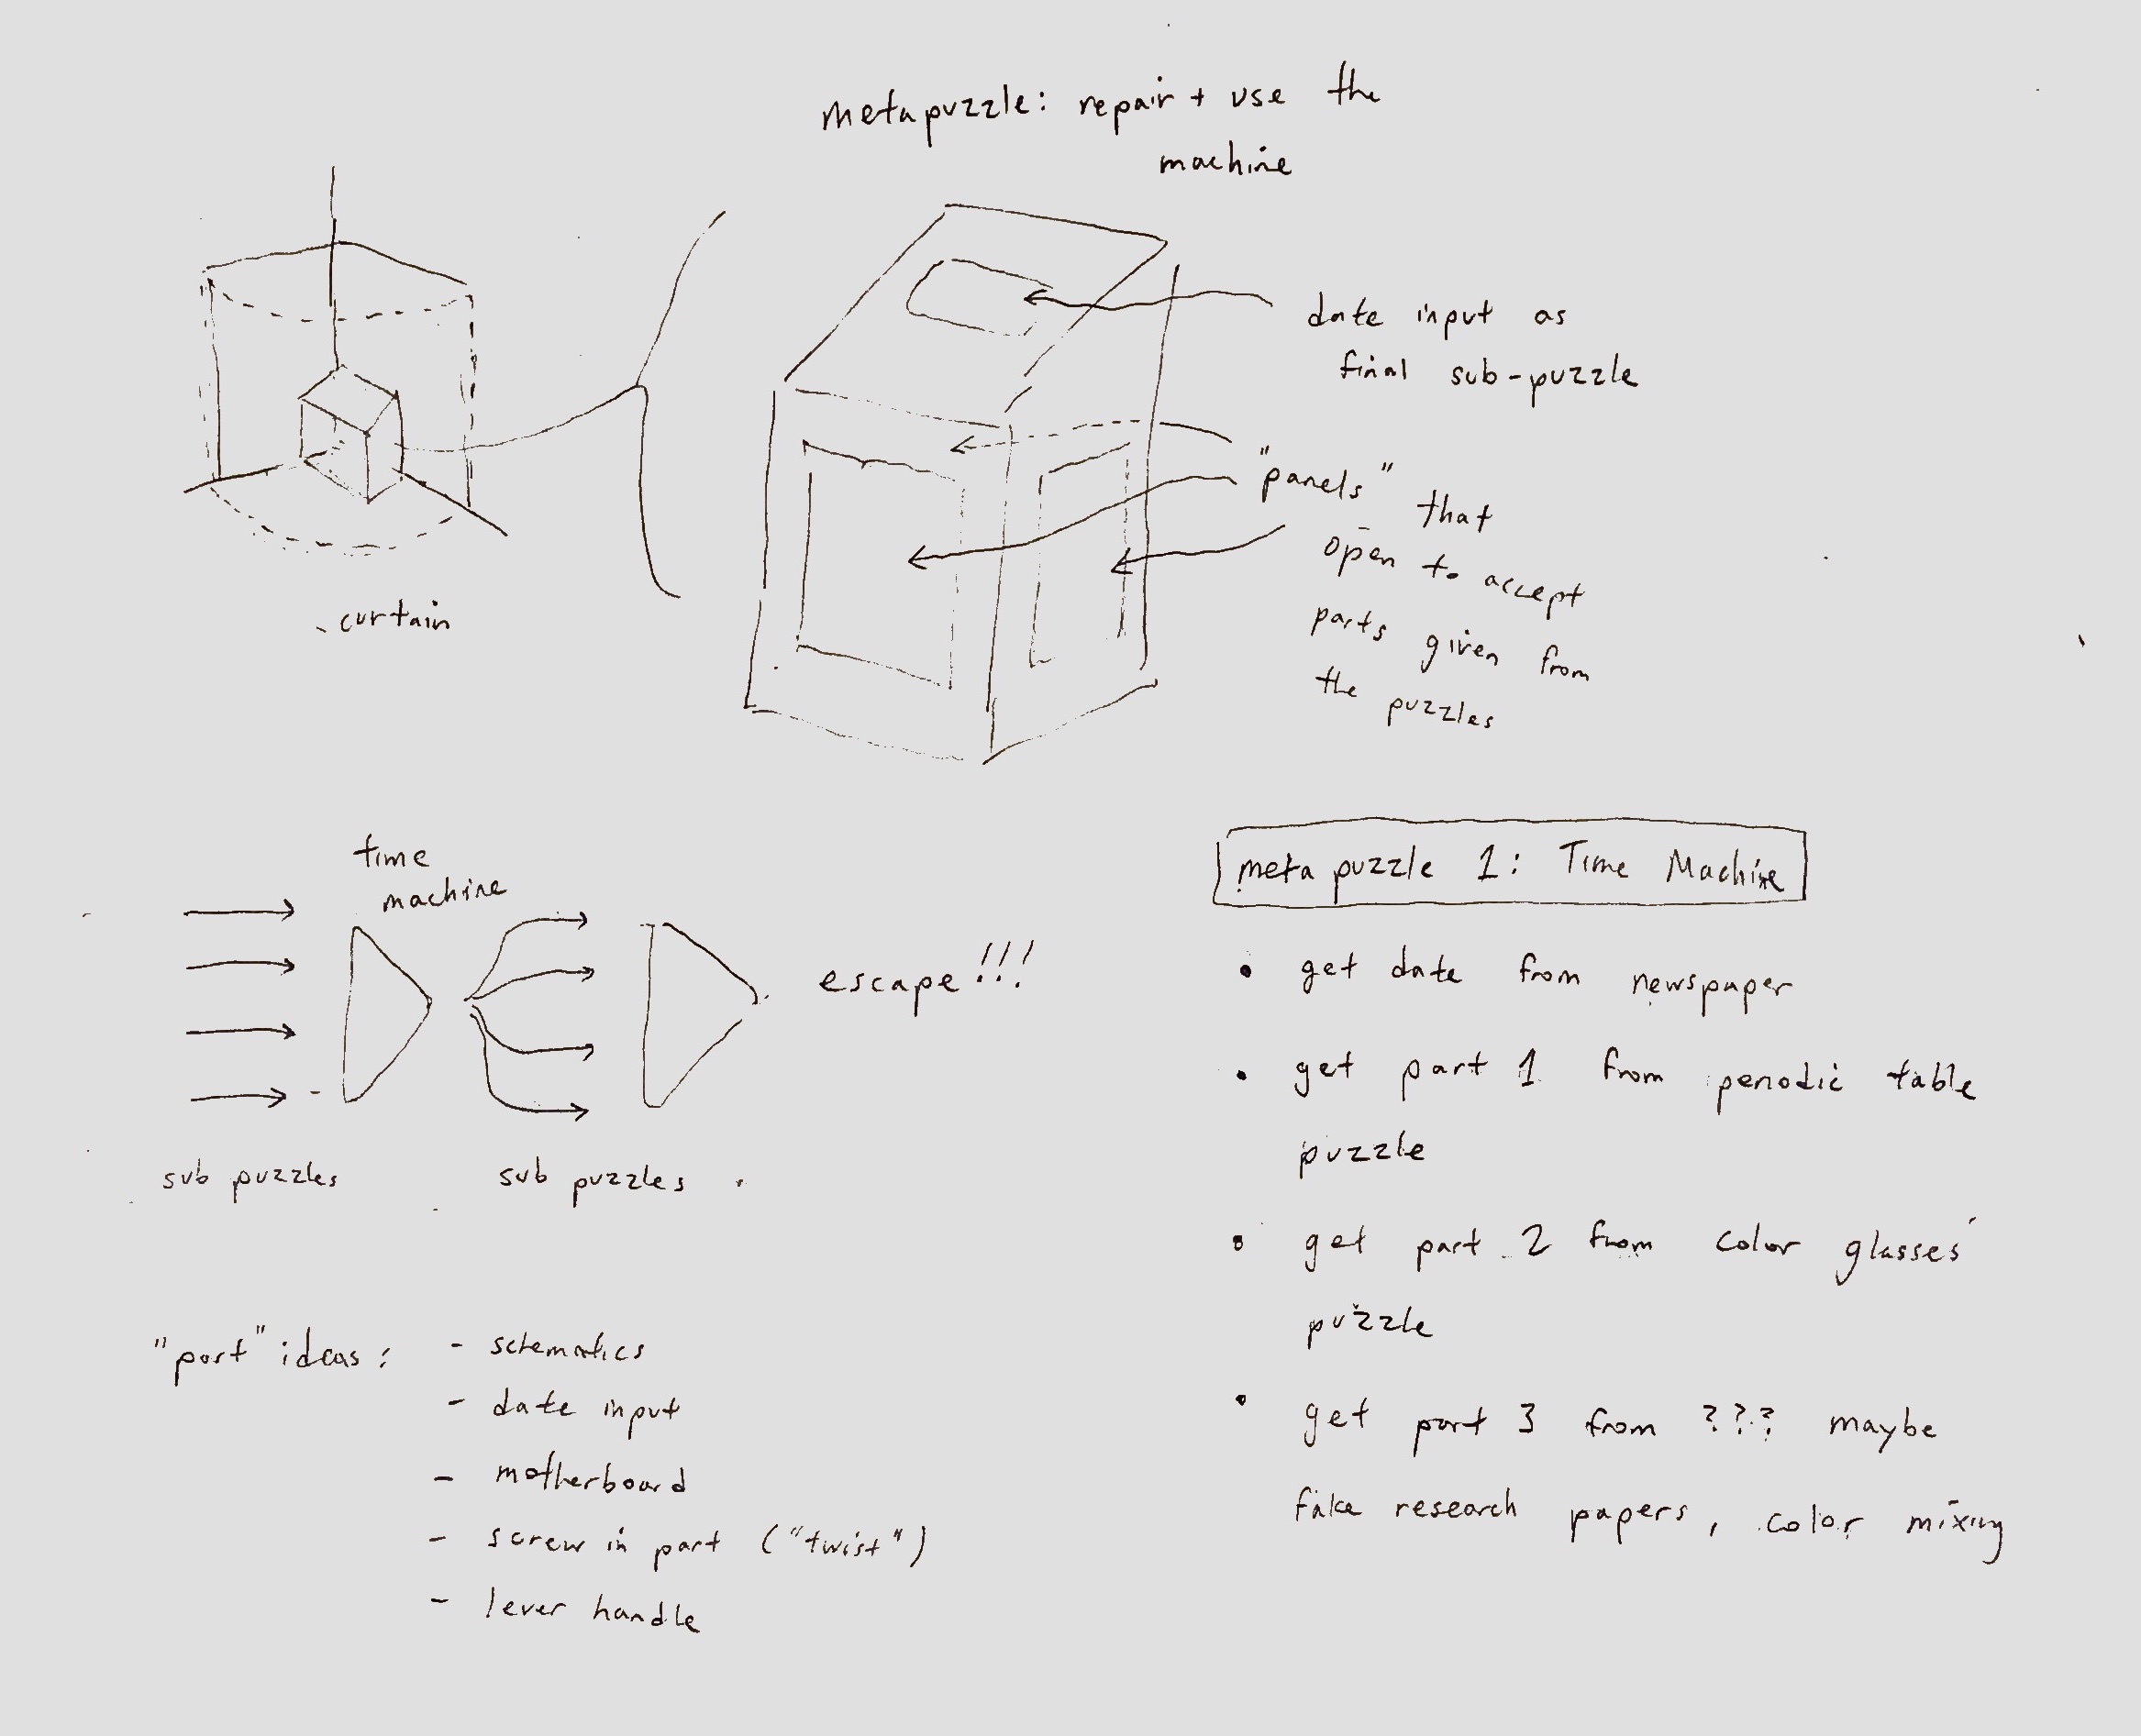 metapuzzle: repair + use the
machine
date input as
final sub-puzzle
"panels" that
open to accept
parts given from
the puzzles
curtain
time
machine
escape!!!
sub puzzles
sub puzzles
"part" ideas:
- schematics
- date input
- motherboard
- screw in part ("twist")
- lever handle
meta puzzle 1: Time Machine
• get date from newspaper
• get part 1 from periodic table
puzzle
• get part 2 from color glasses
puzzle
• get part 3 from ??? maybe
fake research papers, color mixing